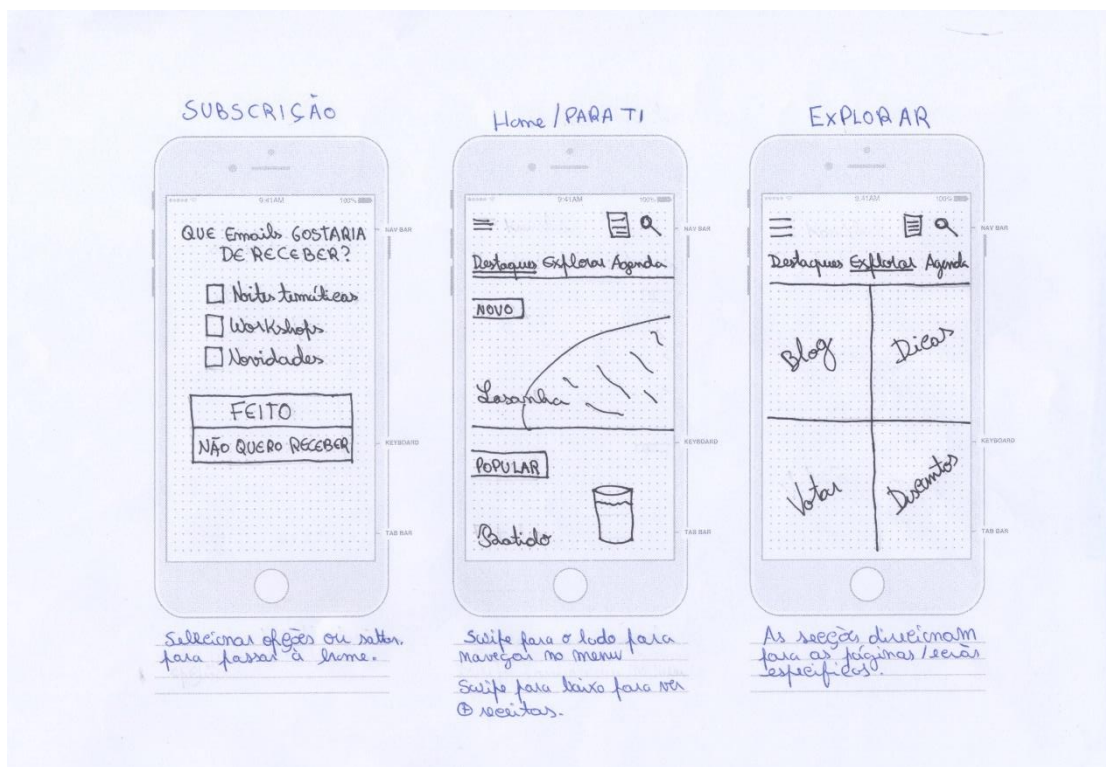 SUBSCRIÇÃO
9:41AM 100%
NAV BAR
QUE Emails GOSTARIA
DE RECEBER?
Noites temáticas
Workshops
Novidades
FEITO
NÃO QUERO RECEBER
KEYBOARD
TAB BAR
Selecionar opções ou saltar.
para passar à home.
Home/PARA TI
9:41AM 100%
NAV BAR
Destaques Explorar Agenda
NOVO
Lasanha
KEYBOARD
POPULAR
Batido
TAB BAR
Swipe para o lado para
navegar no menu
Swipe para baixo para ver
+ receitas.
EXPLORAR
9:41AM 100%
NAV BAR
Destaques Explorar Agenda
Blog Dicas
KEYBOARD
Votar Descontos
TAB BAR
As secções direcionam
para as páginas/ecrãs
específicos.